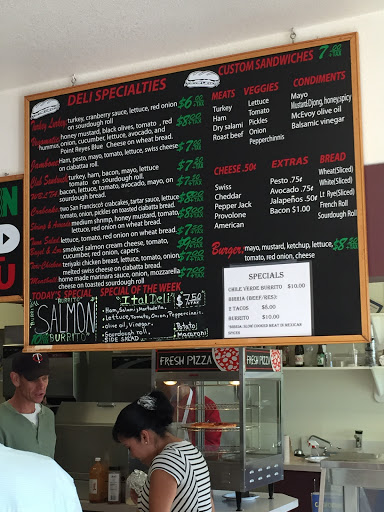 DELI SPECIALTIES
turkey, cranberry sauce, lettuce, red onion
on sourdough roll
honey mustard, black olives, tomato, red
hummus, onion, cucumber, lettuce, avocado, and
Point Reyes Blue Cheese on wheat bread.
Ham, pesto, mayo, tomato, lettuce, swiss cheese
on ciabatta roll.
Club Sandwich turkey, ham, bacon, mayo, lettuce
tomato on sourdough roll.
bacon, lettuce, tomato, avocado, mayo, on
sourdough bread.
two San Francisco crabcakes, tartar sauce, lettuce
tomato, onion, pickles on toasted ciabatta bread.
medium shrimp, honey mustard, tomato,
lettuce, red onion on wheat bread.
Tuna Salad lettuce, tomato, red onion on wheat bread.
Bagel & Lox smoked salmon cream cheese, tomato,
cucumber, red onion, capers.
teriyaki chicken breast, lettuce, onion, tomato
melted swiss cheese on ciabatta bread.
home made marinara sauce, onion, mozzarella
cheese on toasted sourdough roll
TODAY'S SPECIAL
SALMON
BURRITO
SPECIAL OF THE WEEK
"Ital Deli"
Ham, Salami, Mortadella,
Lettuce, Tomato, Onion, Pepperchinnis
olive oil, Vinegar.
Sourdough roll
SIDE SALAD
Potato
Macaroni
CUSTOM SANDWICHES
MEATS
Turkey
Ham
Dry salami
Roast beef
VEGGIES
Lettuce
Tomato
Pickles
Onion
Pepperchinnis
CONDIMENTS
Mayo
Mustard:Dijong, honey,spicy
McEvoy olive oil
Balsamic vinegar
CHEESE .50¢
Swiss
Cheddar
Pepper Jack
Provolone
American
EXTRAS
Pesto .75¢
Avocado .75¢
Jalapeños .50¢
Bacon $1.00
BREAD
Wheat(Sliced)
White(Sliced)
Lt Rye(Sliced)
French Roll
Sourdough Roll
Burger: mayo, mustard, ketchup, lettuce,
tomato, red onion,
SPECIALS
CHILE VERDE BURRITO $10.00
BIRRIA (BEEF/RES):
2 TACOS $8.00
BURRITO $10.00
*BIRRIA: SLOW COOKED MEAT IN MEXICAN
SPICES
FRESH PIZZA
FRESH PIZZA